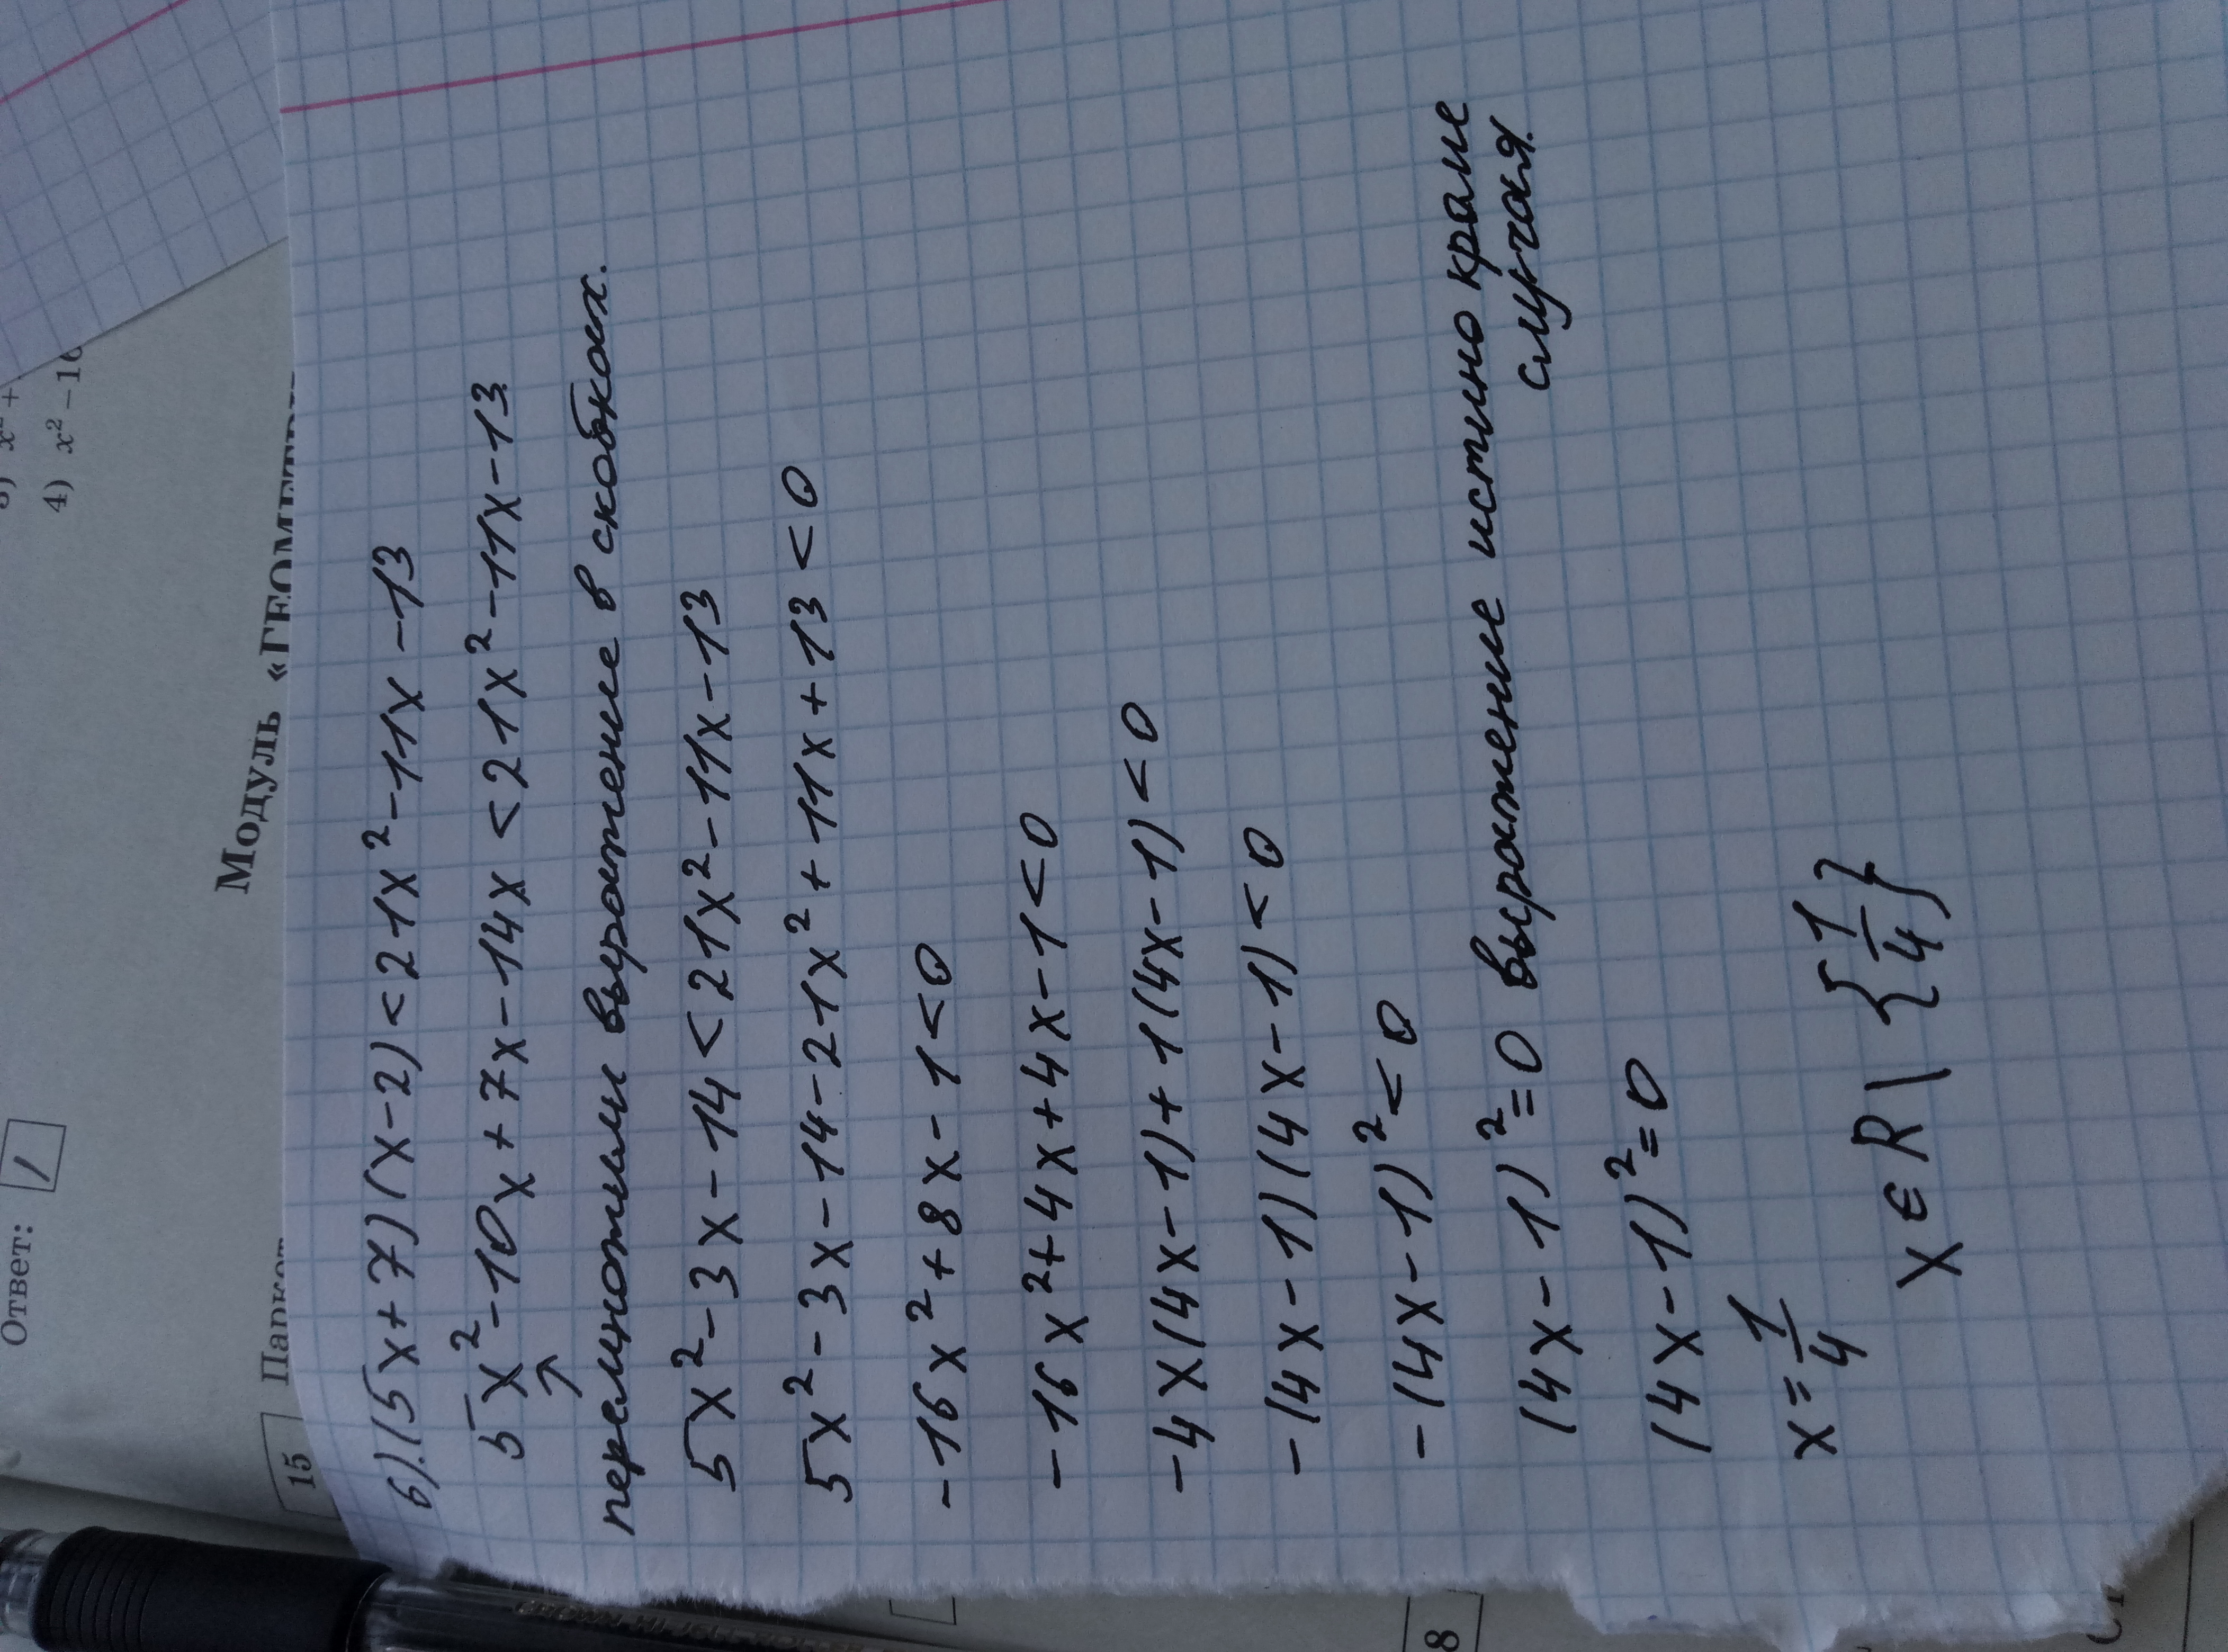 3) x² +
4) x² − 16
Ответ:
Модуль «ГЕОМЕТР
15
б).(5x+7)(x-2)<21x²-11x-13
5x²-10x+7x-14x<21x²-11x-13
перемножили выражение в скобках.
5x²-3x-14<21x²-11x-13
5x²-3x-14-21x²+11x+13<0
-16x²+8x-1<0
-16x²+4x+4x-1<0
-4x(4x-1)+1(4x-1)<0
-(4x-1)(4x-1)<0
-(4x-1)²<0
(4x-1)²=0 выражение истино кроме
случая.
(4x-1)²=0
x=1/4
x∈R\{1/4}
8